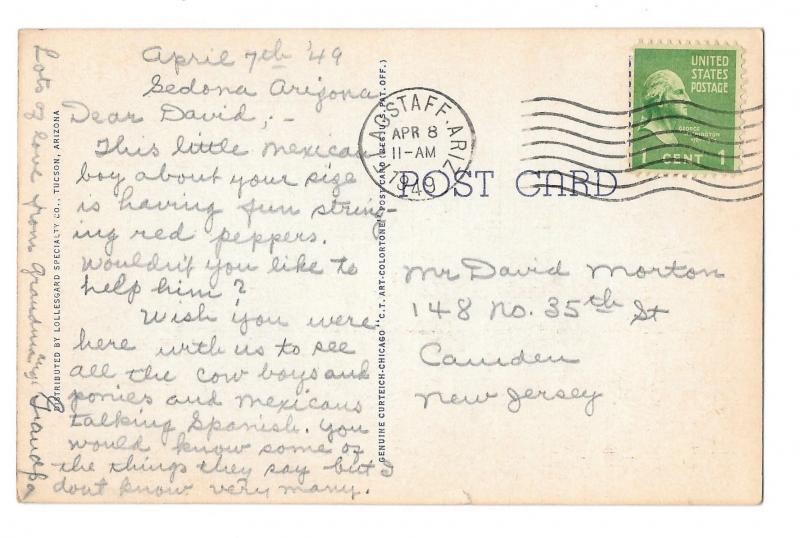 April 7th '49
Sedona Arizona
Dear David, -
This little mexican
boy about your size
is having fun string-
ing red peppers.
Wouldn't you like to
help him?
Wish you were
here with us to see
all the cow boys and
ponies and mexicans
talking Spanish. You
would know some of
the things they say but I
dont know very many.
Lots of love from Grandma & Grandpa
DISTRIBUTED BY LOLLESGARD SPECIALTY CO., TUCSON, ARIZONA
GENUINE CURTEICH-CHICAGO "C.T. ART-COLORTONE" POST CARD (REG. U.S. PAT. OFF.)
FLAGSTAFF, ARIZ.
APR 8
11-AM
1949
UNITED
STATES
POSTAGE
GEORGE
WASHINGTON
1 CENT 1
POST CARD
Mr David Morton
148 No. 35th St
Camden
New Jersey